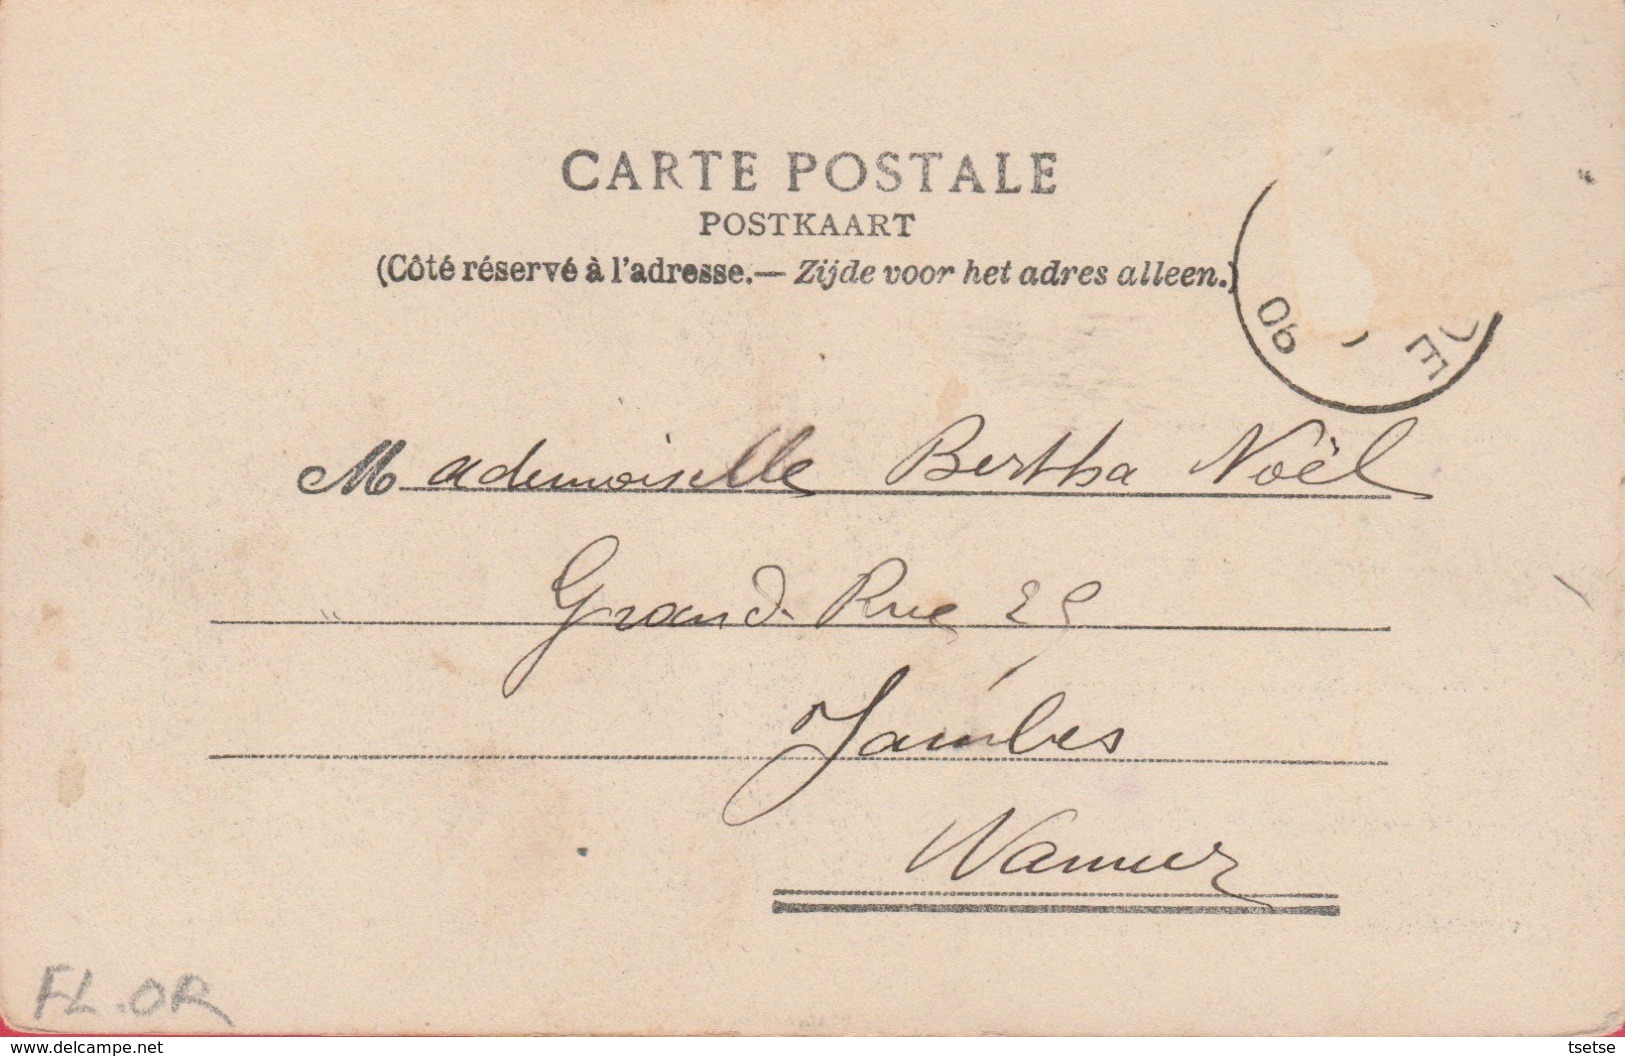 CARTE POSTALE
POSTKAART
(Côté réservé à l'adresse.— Zijde voor het adres alleen.)
06
E
Mademoiselle Bertha Noël
Grand Rue 25
Jambes
Namur
FL.OR
www.delcampe.net
tsetse